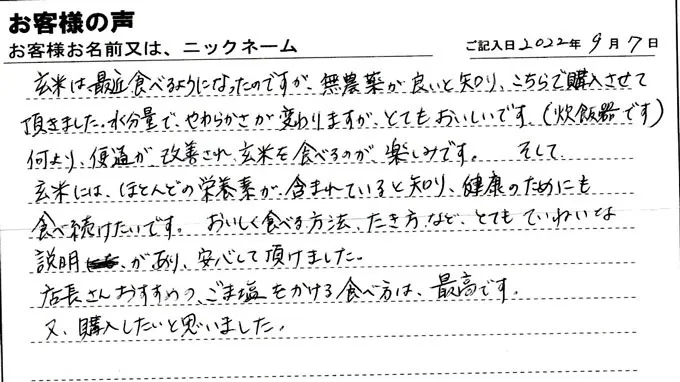 お客様の声
お客様お名前又は、ニックネーム
ご記入日2022年 9月 7日
玄米は最近食べるようになったのですが、無農薬が良いと知り、こちらで購入させて
頂きました。水分量で、やわらかさが変わりますが、とてもおいしいです。(炊飯器です)
何より、便通が改善され、玄米を食べるのが、楽しみです。 そして
玄米には、ほとんどの栄養素が含まれていると知り、健康のためにも
食べ続けたいです。 おいしく食べる方法、たき方など、とてもていねいな
説明があり、安心して頂けました。
店長さんおすすめの、ごま塩をかける食べ方は、最高です。
又、購入したいと思いました。